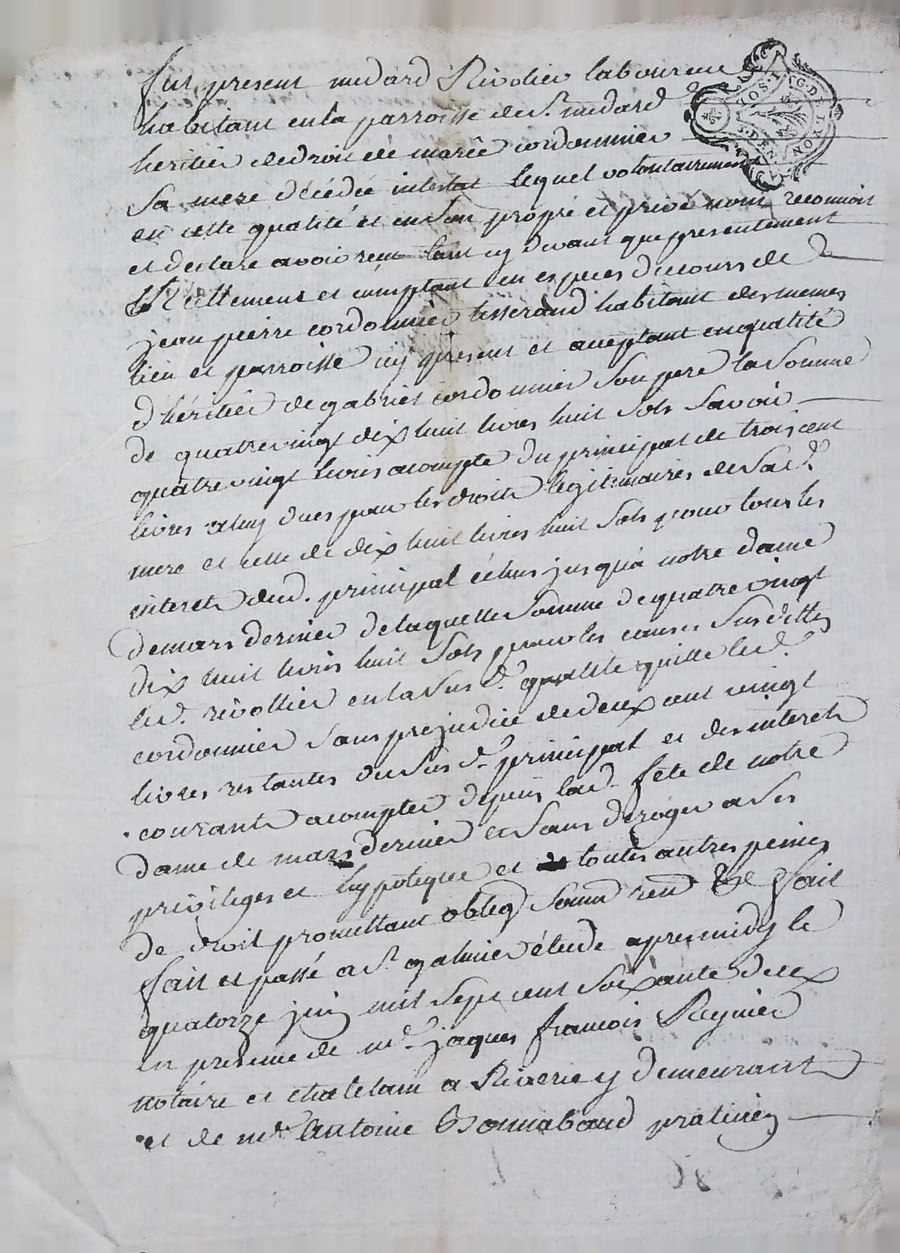 fut present médard Rivolier laboureur
habitant en la parroisse de st. médard
héritier de droit de marie cordonnier
sa mere décédée intestat lequel volontairement
en cette qualité et en son propre et privé nom reconnoit
et declare avoir recu tant cy devant que presentement
réellement et comptant en especes du cours de
jean pierre cordonnier tisserand habitant des memes
lieu et parroisse icy present et aceptant en qualité
d'héritier de gabriel cordonnier son pere la somme
de quatre vingt dix huit livres huit sols savoir
quatre vingt livres acompte du principal de trois cent
livres a luy dues pour les droits légitimaires de sa d.
mere et celle de dix huit livres huit sols pour tous les
interets dud. principal échus jusqu'à notre dame
de mars dernier de laquelle somme de quatre vingt
dix huit livres huit sols pour les causes susdittes
led. rivollier en la sus d. qualité quitte led.
cordonnier sans prejudice de deux cent vingt
livres restantes du sus d. principal et des interets
courants acompter depuis lad. fête de notre
dame de mars dernier et sans déroger a ses
privileges et hypoteque et toutes autres peines
de droit promettant obleg soum ren fait
fait et passé a st. galmier étude apres midy le
quatorze juin mil sept cent soixante deux
en presence de me. jaques francois Regnier
notaire et chatelain a Riverie y demeurant
et de me. antoine Bonnabaud praticien
G. DE LYON